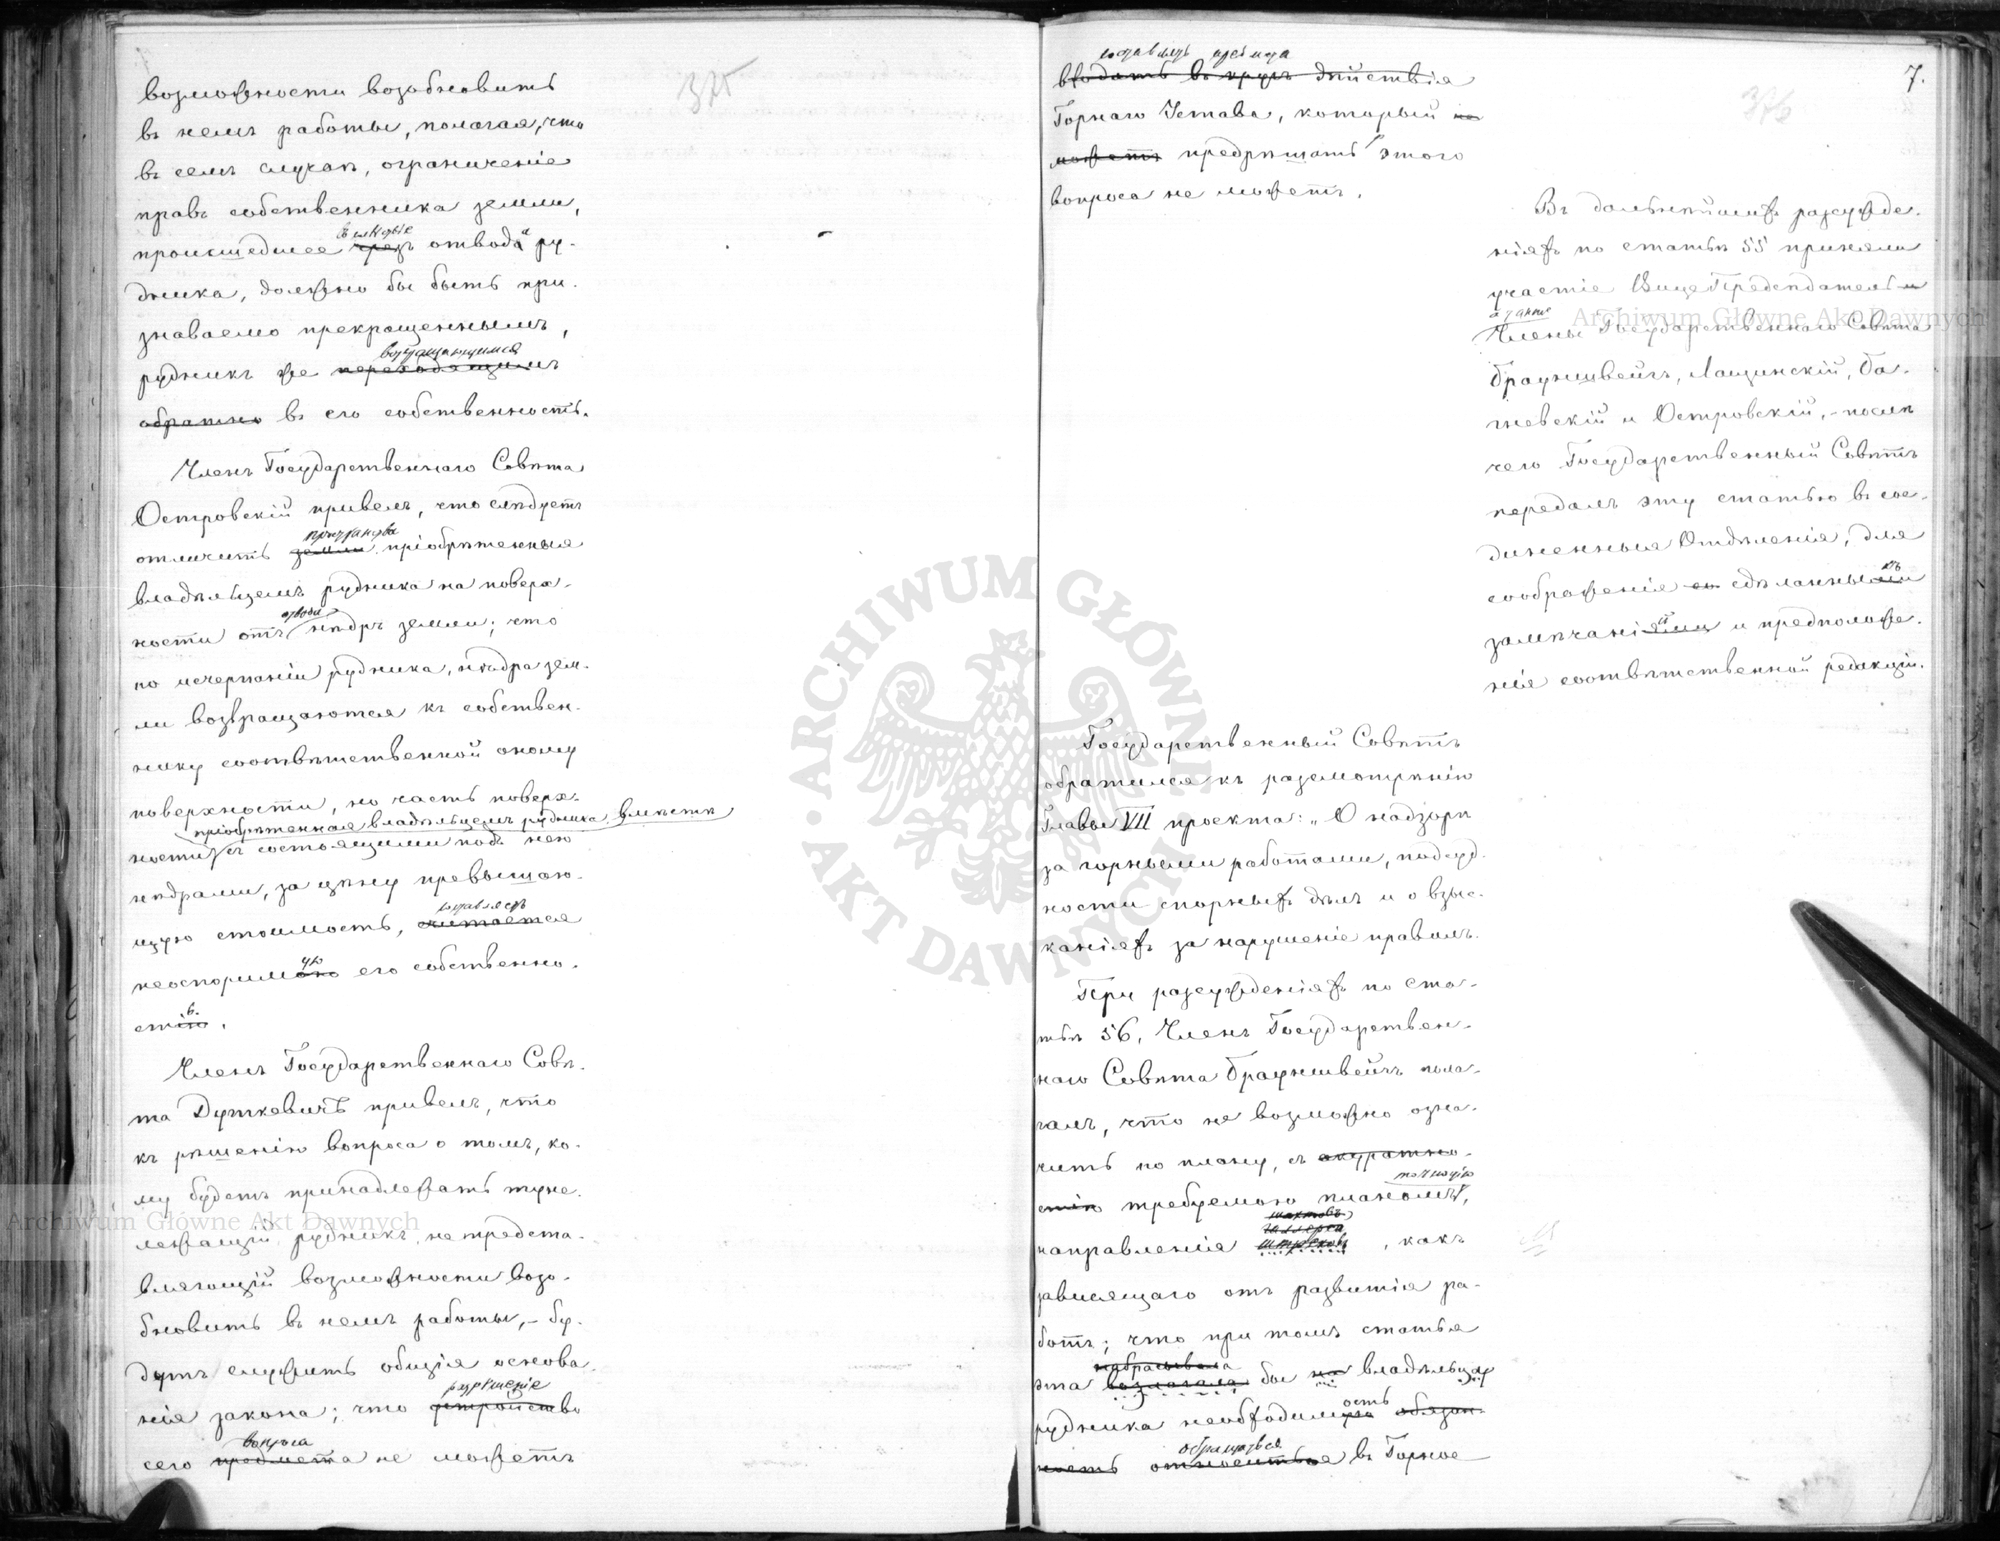 375
возможности возобновить
въ немъ работы, полагая, что
въ семъ случаѣ, ограниченіе
правъ собственника земли,
вслѣдствіе
происшедшее чрезъ отвода ру-
дника, должно бы быть при-
знаваемо прекращеннымъ,
возвращающимся
рудникъ же переходящимъ
обратно въ его собственность.
Членъ Государственнаго Совѣта
Островскій привелъ, что слѣдуетъ
пространства
отличить земли пріобрѣтенныя
владѣльцемъ рудника на поверх-
отвода
ности отъ нѣдръ земли; что
по исчерпаніи рудника, нѣдра зем-
ли возвращаются къ собствен-
нику соотвѣтственной оному
поверхности, но часть поверх-
пріобрѣтенная владѣльцемъ рудника вмѣстѣ
ности съ состоящими подъ нею
нѣдрами, за цѣну превышаю-
составляетъ
щую стоимость, считается
ую
неоспоримою его собственно-
ь.
стію.
Членъ Государственнаго Совѣ-
та Дуткевичъ привелъ, что
къ рѣшенію вопроса о томъ, ко-
му будетъ принадлежать туне-
лежащій рудникъ, не предста-
вляющій возможности возо-
бновить въ немъ работы, - бу-
дутъ служить общія основа-
разрѣшеніе
нія закона; что устройство
вопроса
сего предмета не можетъ
7.
376
составлять предмета
входить въ кругъ дѣйствія
Горнаго Устава, который не
можетъ предрѣшать этого
вопроса не можетъ.
Въ дальнѣйшихъ разсужде-
ніяхъ по статьѣ 55 приняли
участіе Вице Предсѣдатель и
а также
Члены Государственнаго Совѣта
Брауншвейгъ, Лащинскій, Ба-
гневскій и Островскій, - послѣ
чего Государственный Совѣтъ
передалъ эту статью въ сое-
диненныя Отдѣленія, для
хъ
соображенія со сдѣланными
й
замѣчаніями и предположе-
нія соотвѣтственной редакціи.
Государственный Совѣтъ
обратился къ разсмотрѣнію
Главы VII проекта: „О надзорѣ
за горными работами, подсуд-
ности спорныхъ дѣлъ и о взыс-
каніяхъ за нарушеніе правилъ.
При разсужденіяхъ по ста-
тьѣ 56, Членъ Государствен-
наго Совѣта Брауншвейгъ пола-
галъ, что не возможно озна-
чить по плану, съ акуратно-
точностію
стію требуемою планомъ,
шахтовъ,
галлерей
направленія штрековъ, какъ
зависящаго отъ развитія ра-
ботъ; что при томъ статья
набрасывала
эта возлагала бы на владѣльца
ость
рудника необходимую обязан-
обращаться
ность относиться въ Горное